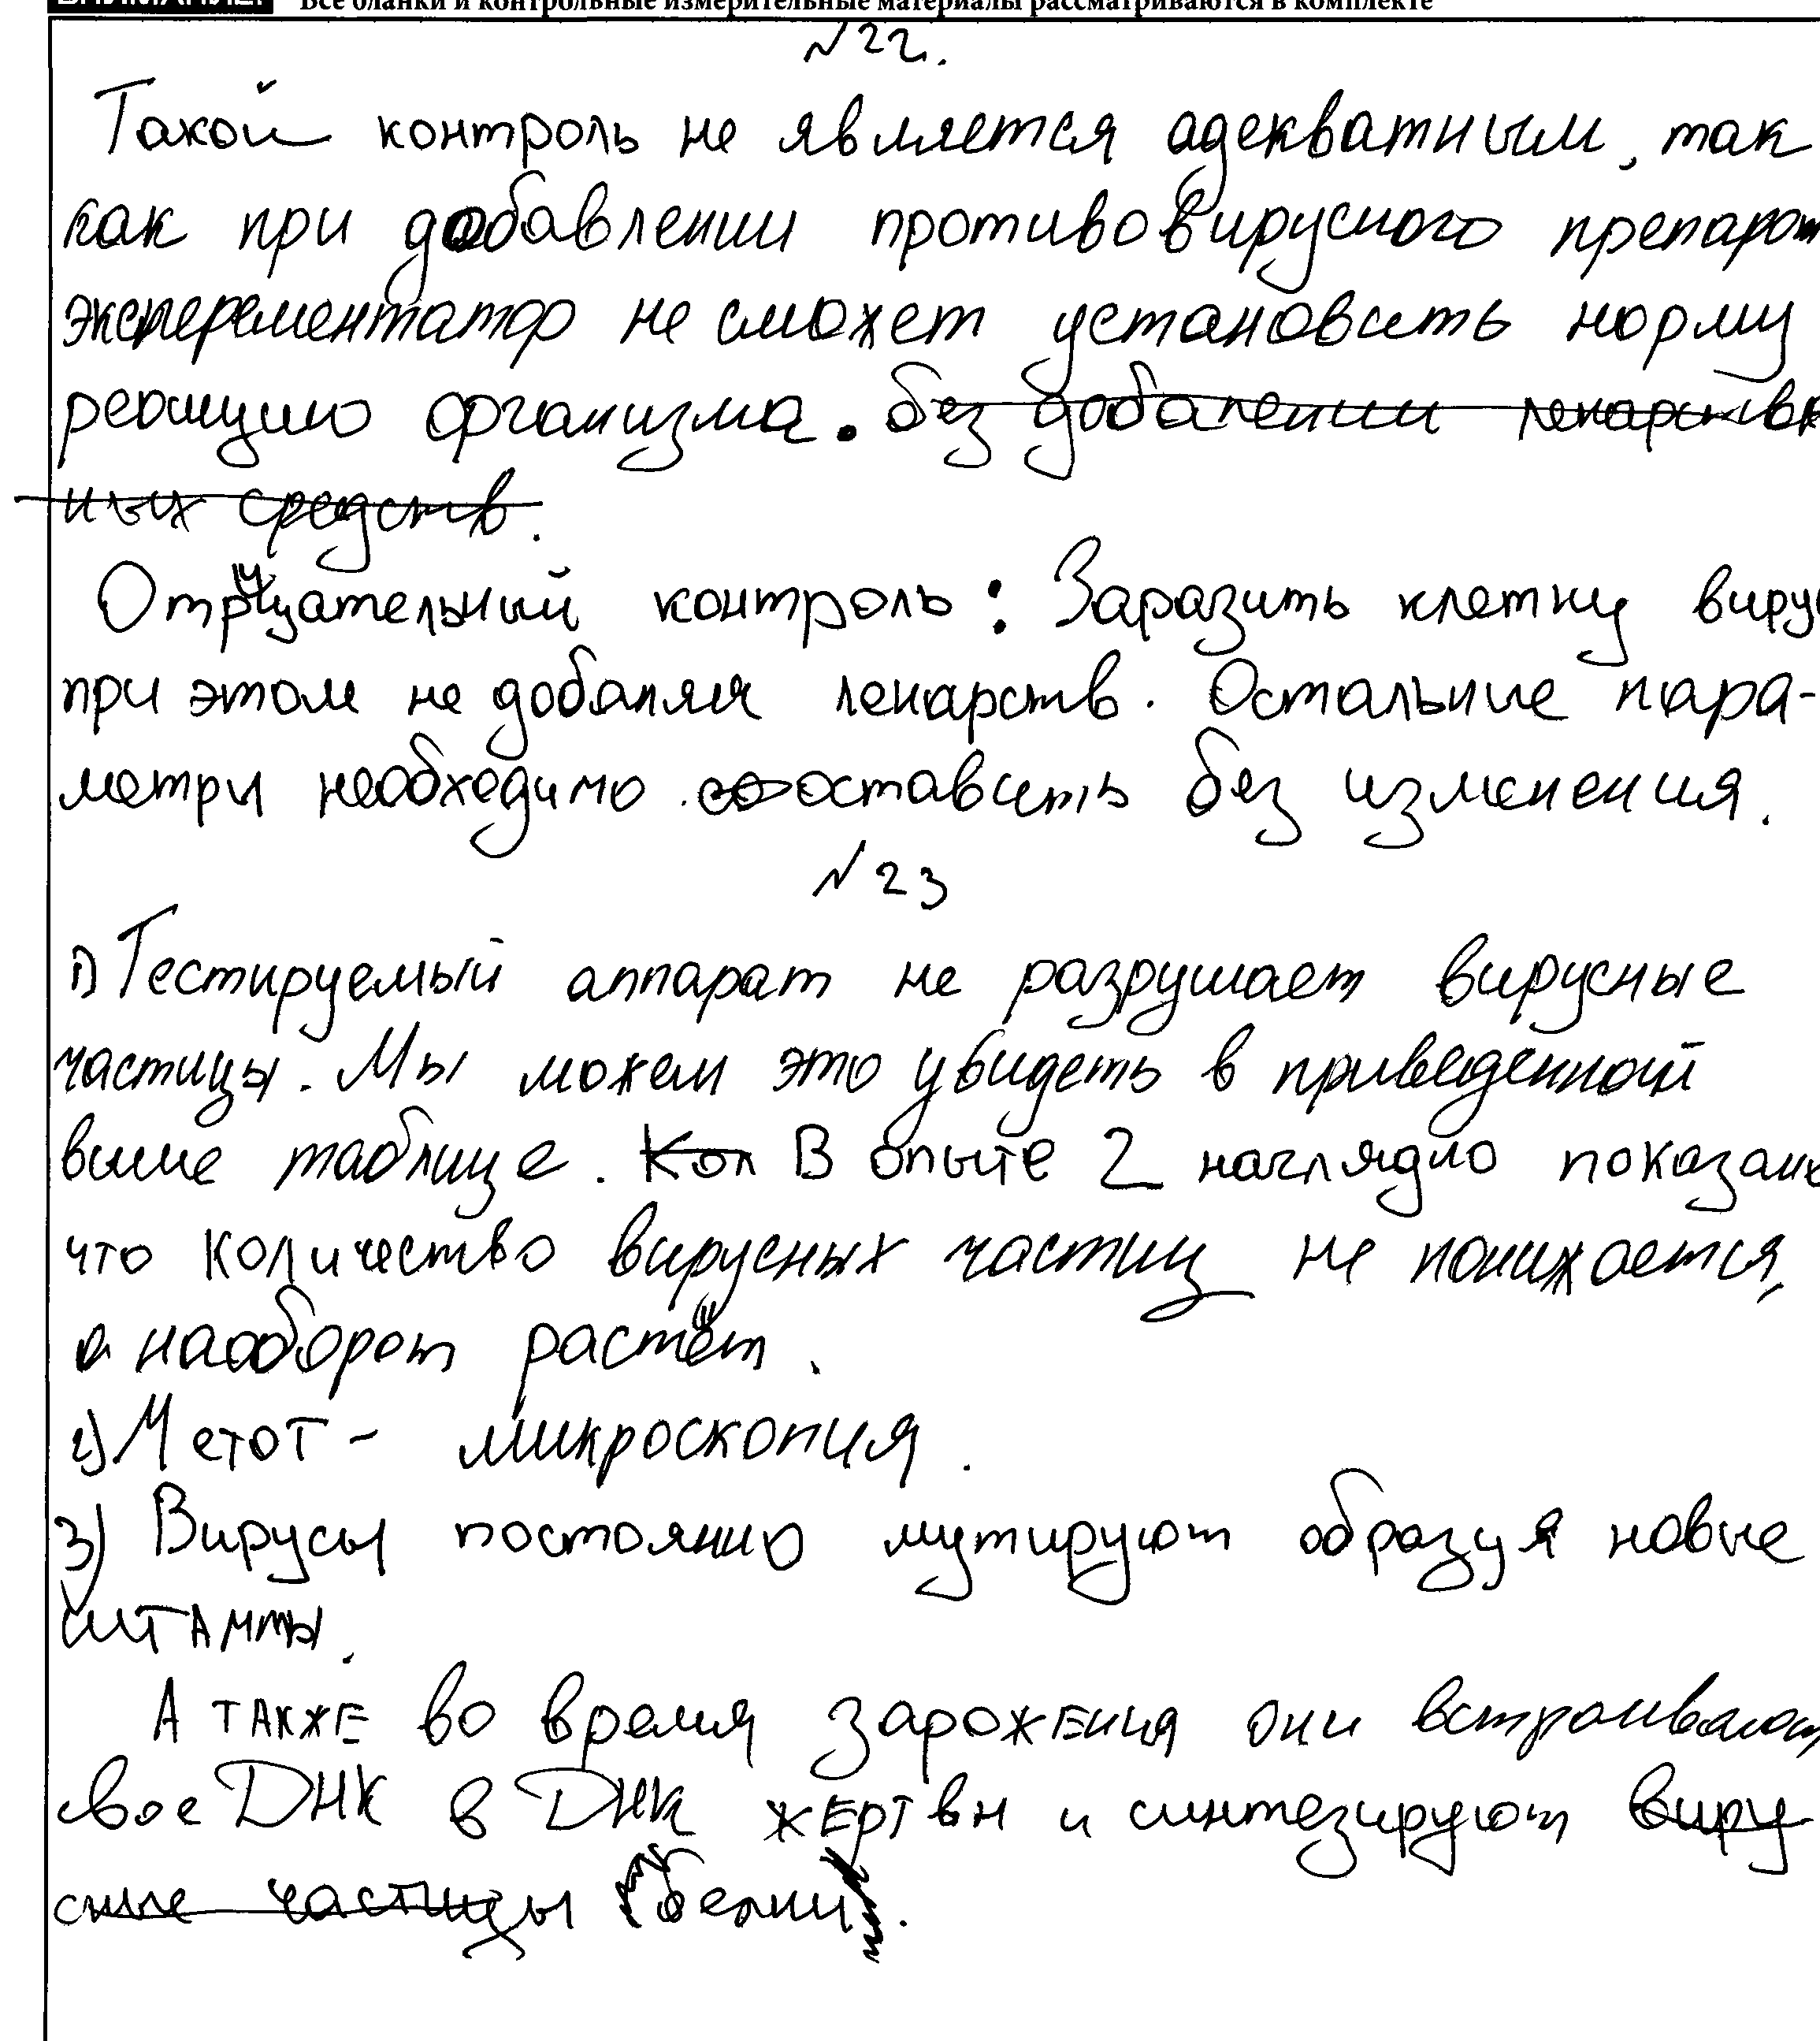 Все бланки и контрольные измерительные материалы рассматриваются в комплекте
№22.
Такой контроль не является адекватным, так
как при добавлении противовирусного препарат
эксперементатор не сможет установить норму
реакцию организма. без добавлении лекарствен
ных средств.
Отрицательный контроль: Заразить клетку виру
при этом не добавляя лекарств. Остальные пара-
метры необходимо оставить без изменения.
№23
1) Тестируемый аппарат не разрушает вирусные
частицы. Мы можем это увидеть в приведенной
выше таблице. Кол В опыте 2 наглядно показано
что количество вирусных частиц не понижается,
а наоборот растёт.
2) Метот - микроскопия.
3) Вирусы постоянно мутируют образуя новые
штаммы.
А также во время заражения они встраивают
свое ДНК в ДНК жертвы и синтезируют виру
сные частицы белки.